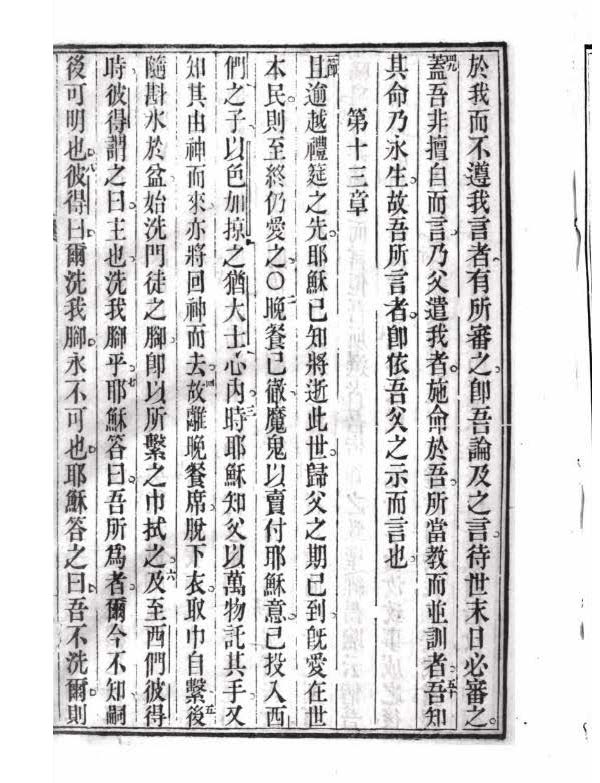 於我而不遵我言者有所審之卽吾論及之言待世末日必審之
四九蓋吾非擅自而言乃父遣我者施命於吾所當教而並訓者五十吾知
其命乃永生故吾所言者卽依吾父之示而言也
第十三章
一節且逾越禮筵之先耶穌已知將逝此世歸父之期已到旣愛在世
本民則至終仍愛之〇二晚餐已徹魔鬼以賣付耶穌意已投入西
們之子以色加掠之猶大士心內三時耶穌知父以萬物託其手又
知其由神而來亦將回神而去四故離晚餐席脫下衣取巾自繫五後
隨斟水於盆始洗門徒之腳卽以所繫之巾拭之六及至西們彼得
時彼得謂之曰主也洗我腳乎七耶穌答曰吾所為者爾今不知嗣
後可明也八彼得曰爾洗我腳永不可也耶穌答之曰吾不洗爾則